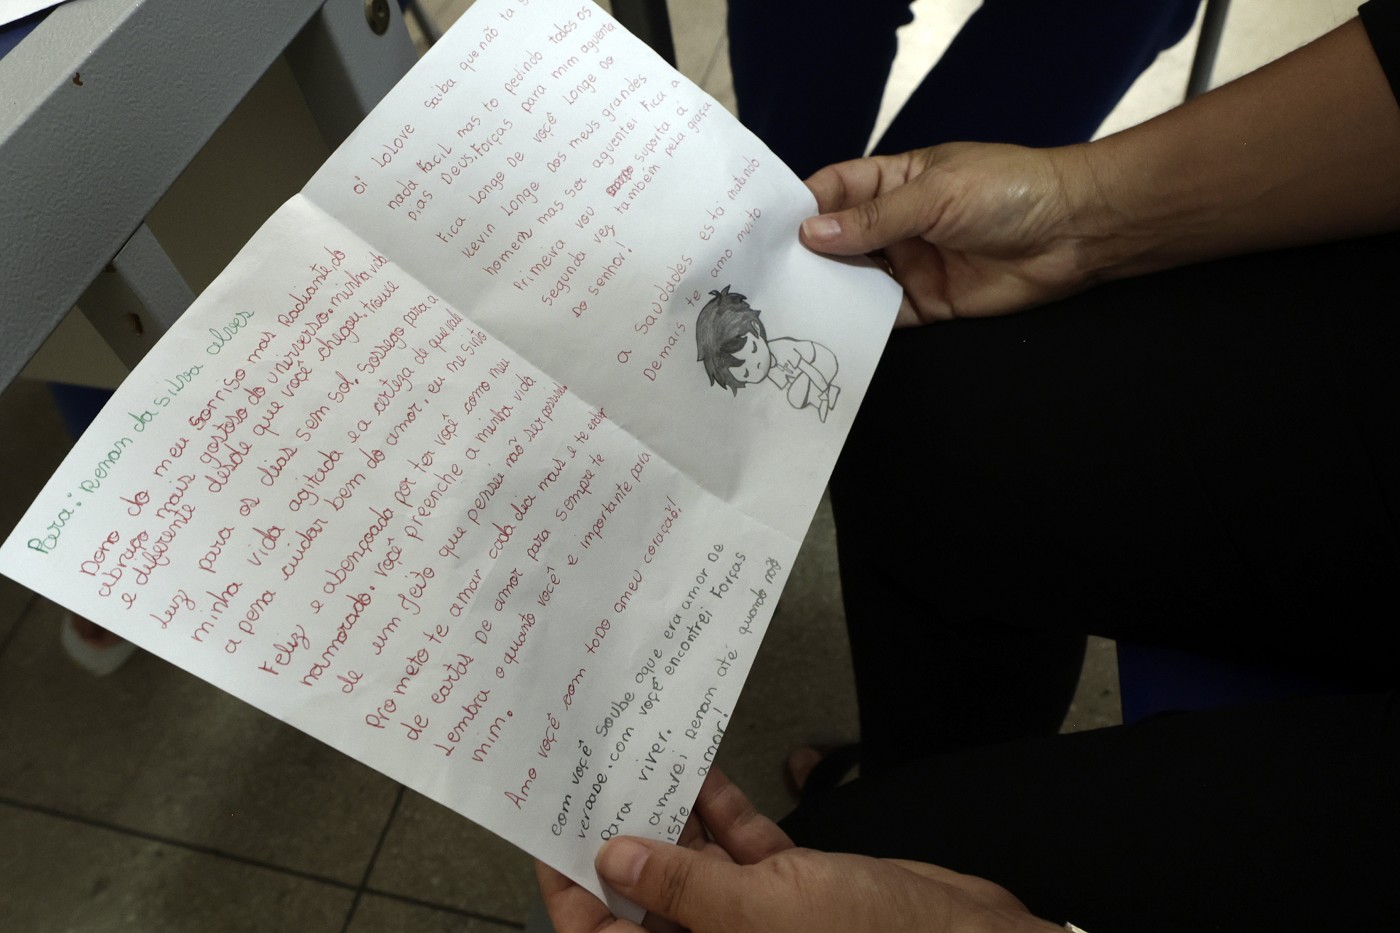 oi LoLove saiba que não ta s
nada Facil mas to pedindo todos os
Dias Deus. Forças para mim aguenta
Fica Longe De você Longe Do
kevin Longe Dos meus grandes
homens mas ser aguentei Fica a
Primeira vou suporta á
segunda vez também pela graça
Do senhor!
a saudades está matando
Demais te amo muito
Para: Renan da Silva alves
Dono do meu sorriso mas Radiante, do
abraço mais gostoso do universo. minha vida
e diferente desde que você chegou, trouxe
Luz para os dias sem sol, sossego para a
minha vida agitada e a certeza de que vale
a pena cuidar bem do amor, eu me sinto
Feliz e abençoada por ter você como meu
namorado. você preenche a minha vida
de um jeito que pensei não ser possivel.
Prometo te amar cada dia mais e te
de cartas De amor para sempre te
Lembra o quanto você e importante para
mim.
Amo você com todo omeu coração!
com você soube oque era amor De
verdade. com você encontrei Forças
Para viver.
amarei Renan até quando não
iste amor!